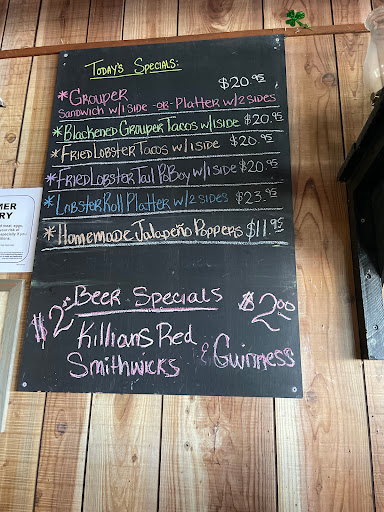 Today's Specials:
* Grouper $20.95
Sandwich w/1 side -or- Platter w/2 sides
* Blackened Grouper Tacos w/1 side $20.95
* Fried Lobster Tacos w/1 side $20.95
* Fried Lobster Tail PoBoy w/1 side $20.95
* Lobster Roll Platter w/2 sides $23.95
* Homemade Jalapeño Poppers $11.95
Beer Specials $2.00
$2
Killians Red
Smithwicks & Guinness
MER
RY